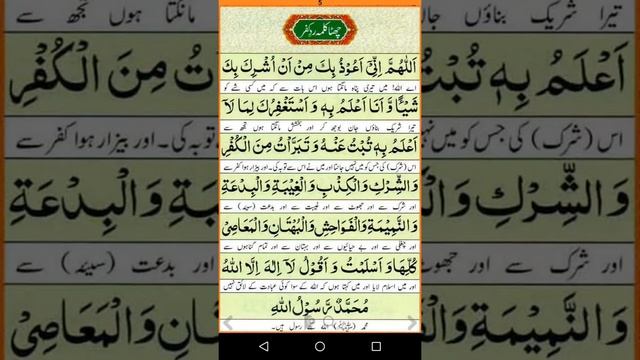 چھٹا کلمہ ردِّ کفر
اَللّٰهُمَّ اِنِّیْۤ اَعُوْذُ بِكَ مِنْ اَنْ اُشْرِكَ بِكَ
اے اللہ! میں تیری پناہ مانگتا ہوں اس بات سے کہ میں کسی شے کو
شَیْـًٔا وَّ اَنَا اَعْلَمُ بِهٖ وَ اَسْتَغْفِرُكَ لِمَا لَاۤ
تیرا شریک بناؤں جان بوجھ کر اور بخشش مانگتا ہوں تجھ سے
اَعْلَمُ بِهٖ تُبْتُ عَنْهُ وَ تَبَرَّاْتُ مِنَ الْكُفْرِ
اس (شرک) کی جس کو میں نہیں جانتا اور میں نے اس سے توبہ کی۔ اور بیزار ہوا کفر سے
وَالشِّرْكِ وَالْكِذْبِ وَالْغِیْبَةِ وَالْبِدْعَةِ
اور شرک سے اور جھوٹ سے اور غیبت سے اور بدعت (سیئہ) سے
وَالنَّمِیْمَةِ وَالْفَوَاحِشِ وَالْبُهْتَانِ وَالْمَعَاصِیْ
اور چغلی سے اور بے حیائیوں سے اور بہتان سے اور تمام گناہوں سے
كُلِّهَا وَ اَسْلَمْتُ وَ اَقُوْلُ لَاۤ اِلٰهَ اِلَّا اللّٰهُ
اور میں اسلام لایا اور میں کہتا ہوں کہ اللہ کے سوا کوئی عبادت کے لائق نہیں
مُحَمَّدٌ رَّسُوْلُ اللّٰهِ
محمد (ﷺ) اللہ کے رسول ہیں۔